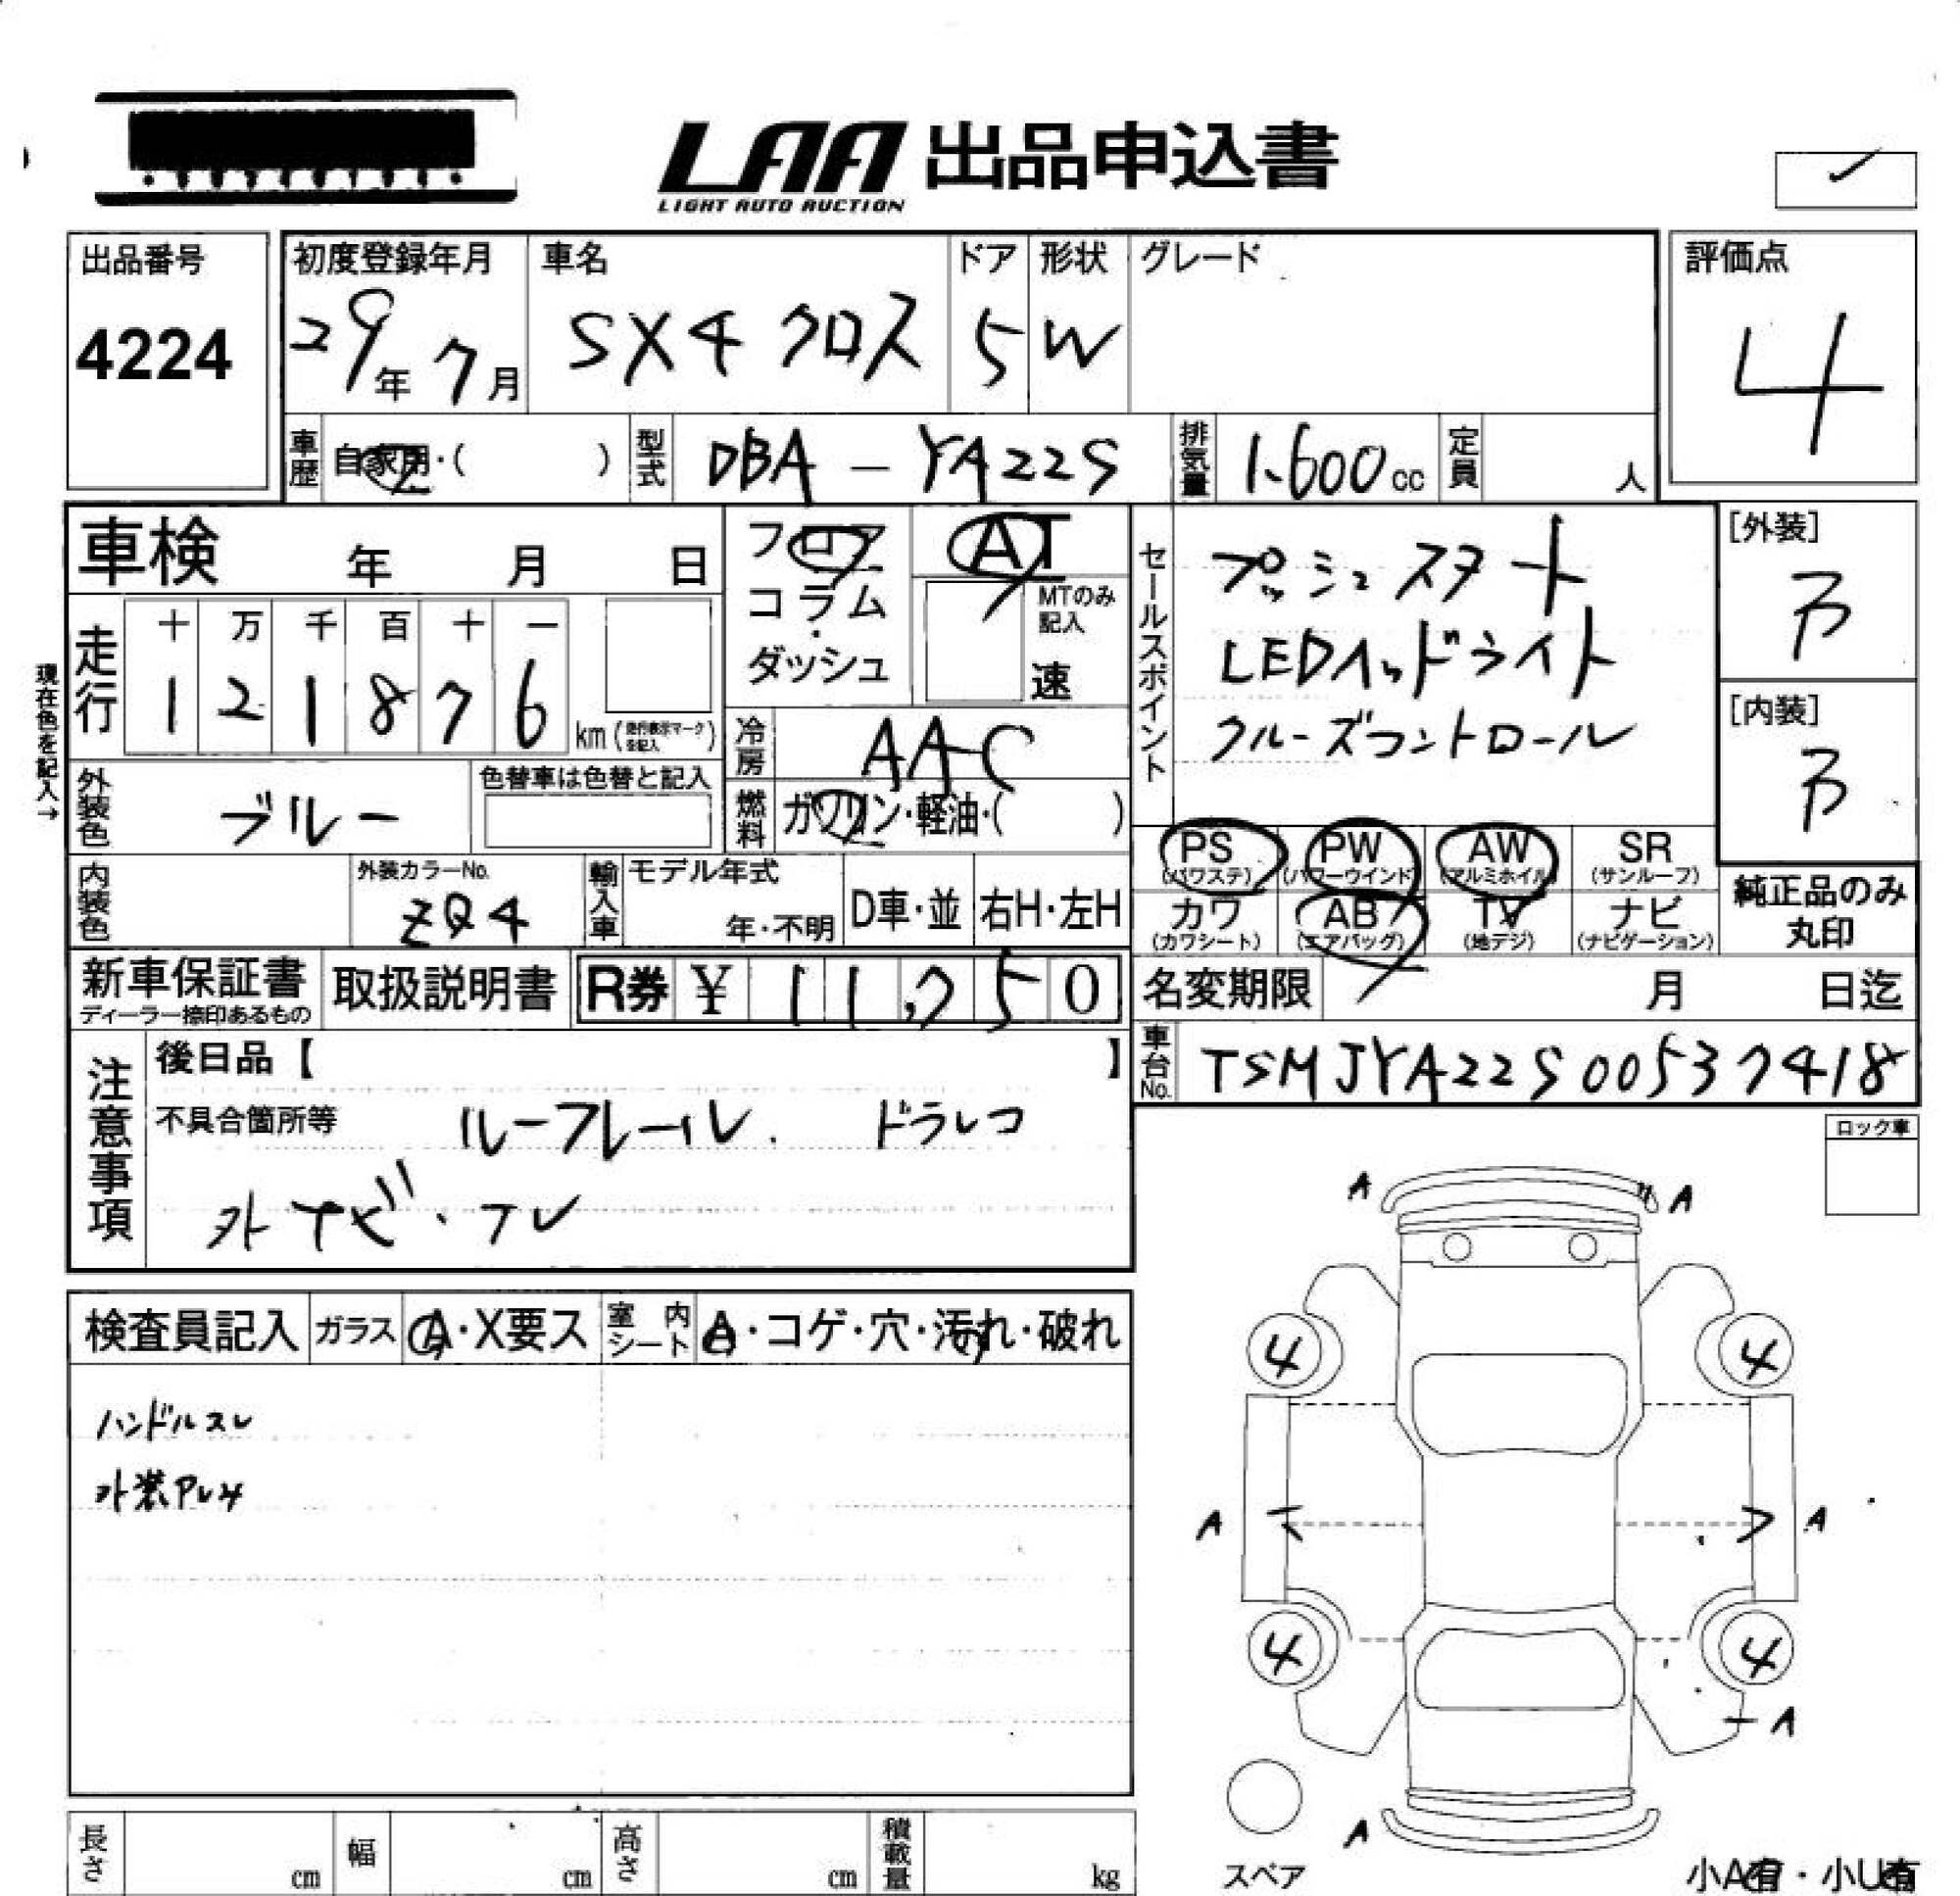 LAA 出品申込書
LIGHT AUTO AUCTION
出品番号
4224
初度登録年月
29年 7月
車名
SX4 クロス
ドア
5
形状
W
グレード
評価点
4
車歴
自家用・( )
型式
DBA - YA22S
排気量
1.600cc
定員
人
車検 年 月 日
走行
十 万 千 百 十 一
1 2 1 8 7 6
km(走行表示マークを記入)
現在色を記入→
フロア
コラム
・
ダッシュ
AT
MTのみ
記入
速
冷房
AAC
燃料
ガソリン・軽油・( )
セールスポイント
プッシュスタート
LEDヘッドライト
クルーズコントロール
[外装]
B
[内装]
B
外装色
ブルー
色替車は色替と記入
内装色
外装カラーNo.
ZQ4
輸入車
モデル年式
年・不明
D車・並
右H・左H
PS
(パワステ)
PW
(パワーウインド)
AW
(アルミホイル)
SR
(サンルーフ)
カワ
(カワシート)
AB
(エアバッグ)
TV
(地デジ)
ナビ
(ナビゲーション)
純正品のみ
丸印
新車保証書
ディーラー捺印あるもの
取扱説明書
R券 ¥ 11,250
名変期限 月 日迄
車台No.
TSMJYA22S00537418
注意事項
後日品【 】
不具合箇所等
ルーフレール. ドラレコ
外ナビ・フレ
ロック車
検査員記入
ガラス
A・X要ス
室内シート
A・コゲ・穴・汚れ・破れ
ハンドルスレ
外装
A A
4 4
A A
4 4
A
A
スペア
小A有・小U有
長さ cm
幅 cm
高さ cm
積載量 kg